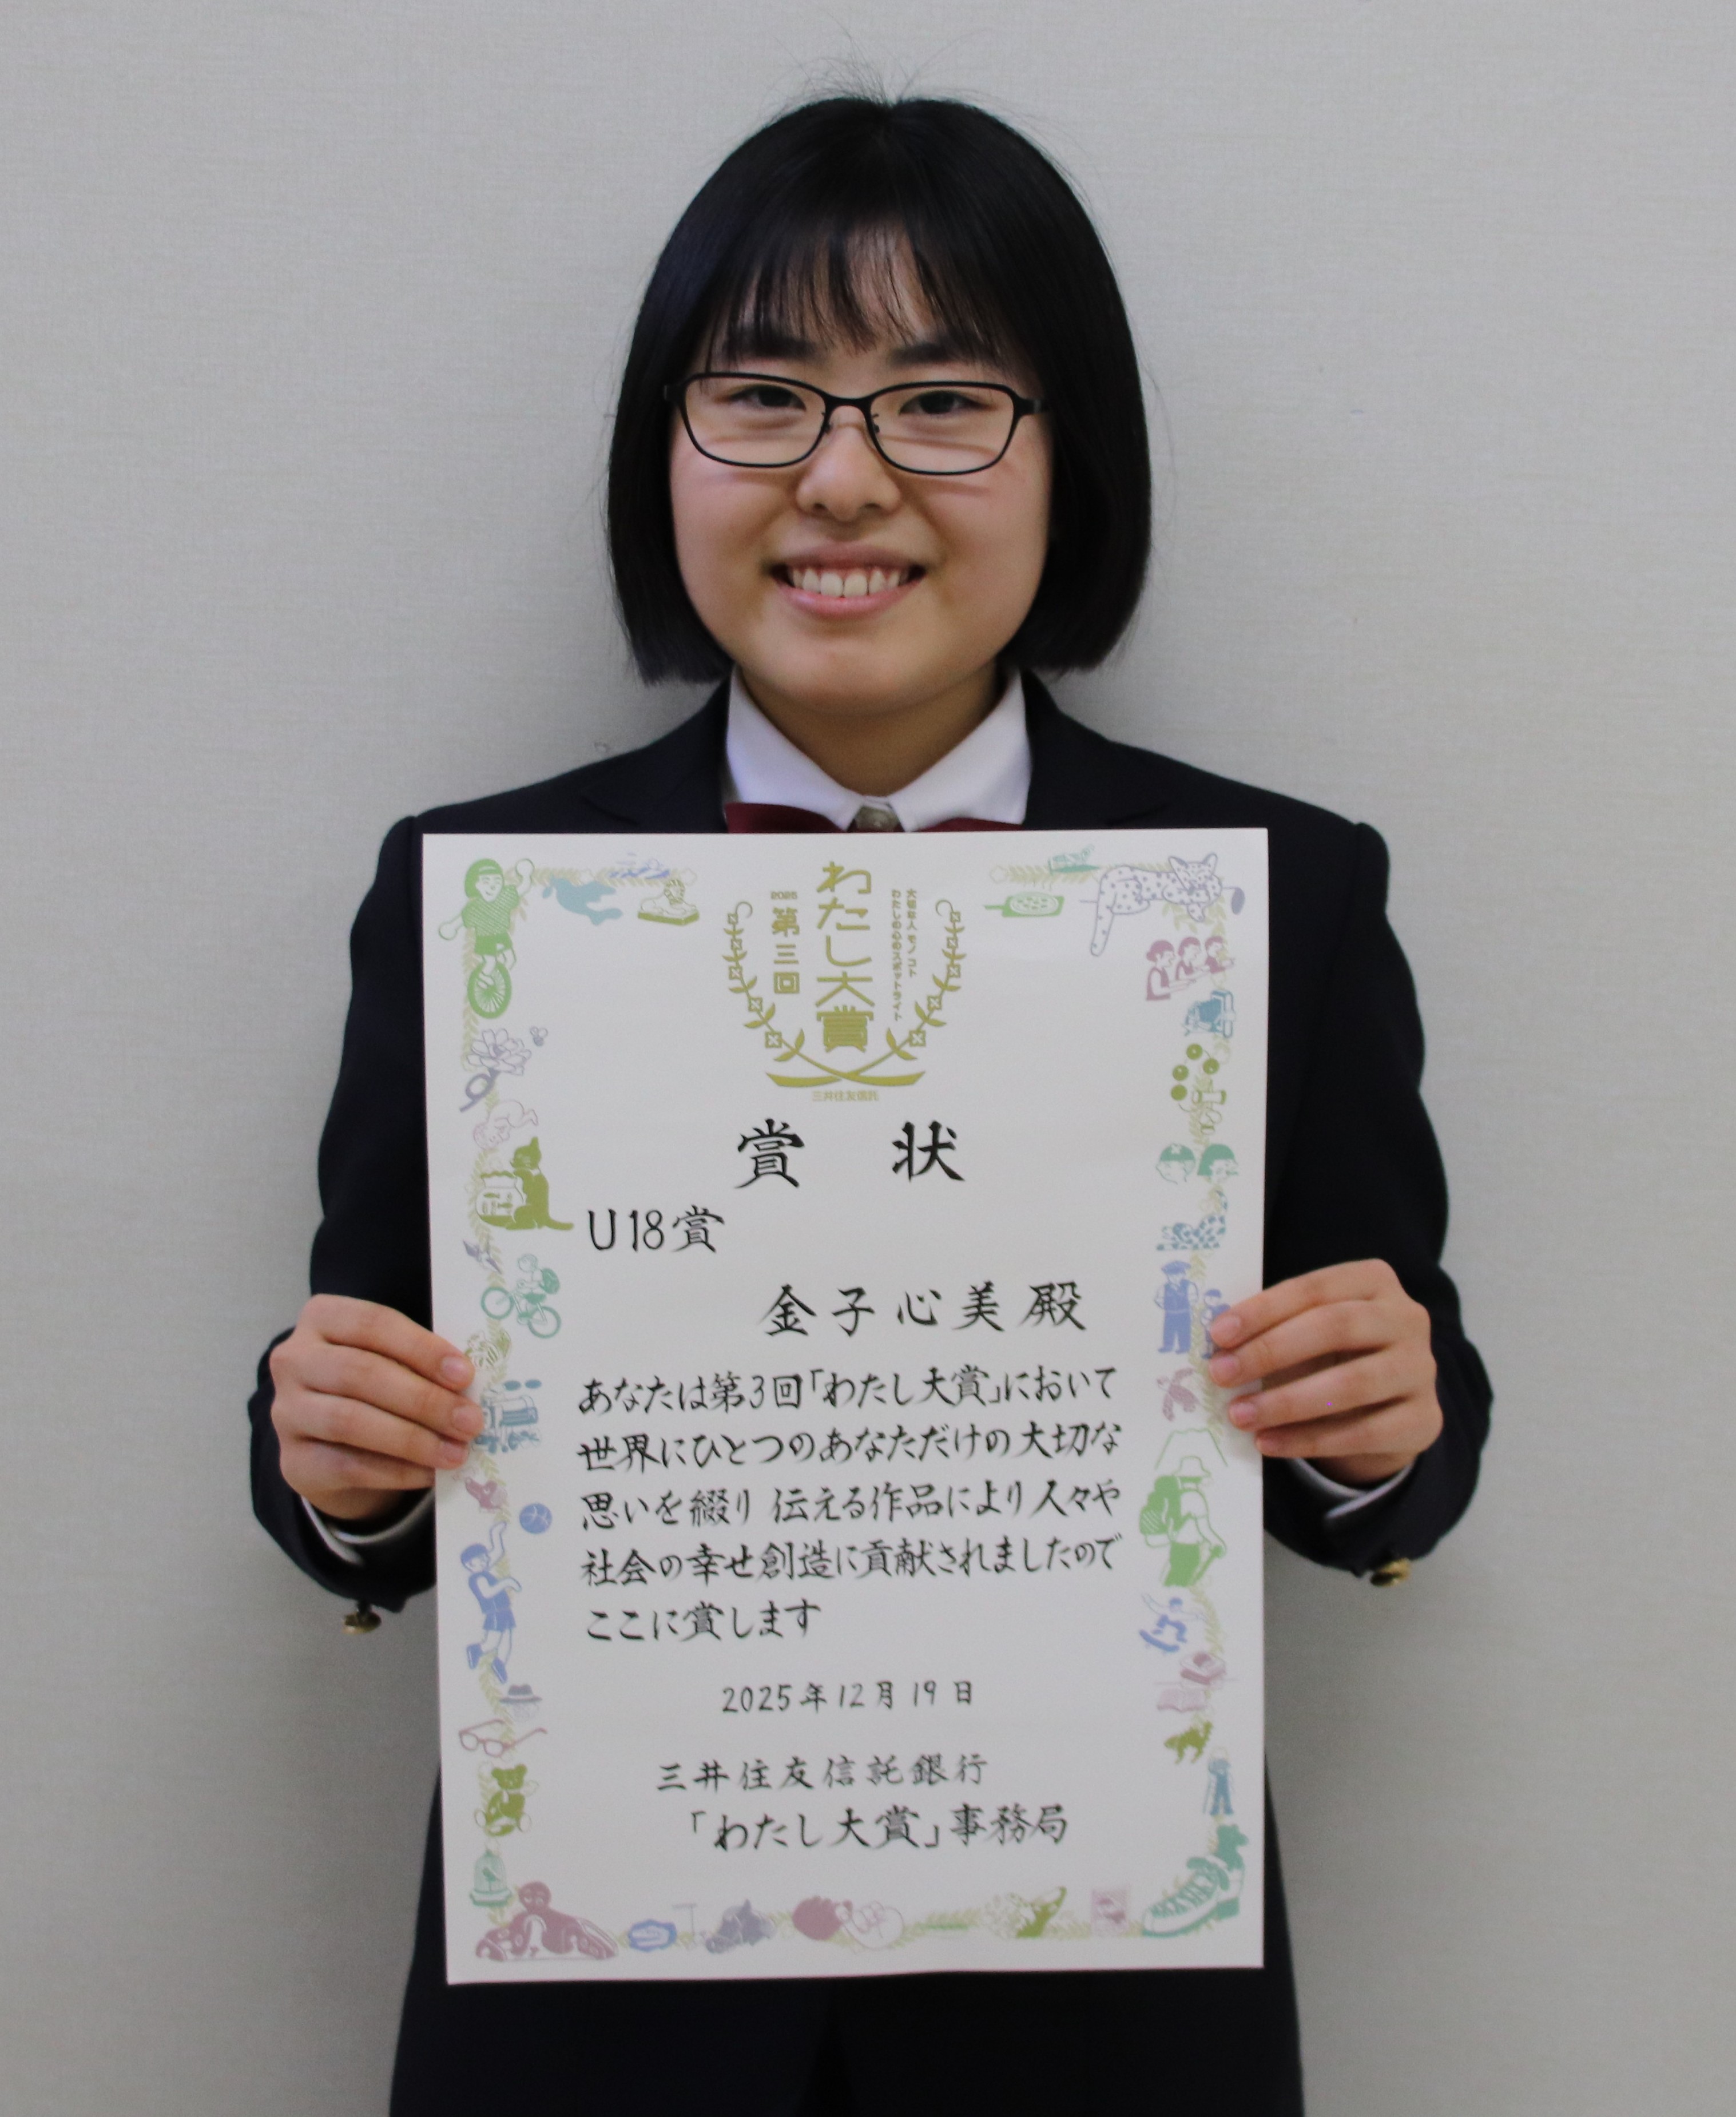 大切な人 モノ コト
わたしの心のスポットライト
わたし大賞
2025
第三回
三井住友信託
賞 状
U18賞
金子心美殿
あなたは第3回「わたし大賞」において
世界にひとつのあなただけの大切な
思いを綴り 伝える作品により人々や
社会の幸せ創造に貢献されましたので
ここに賞します
2025年12月19日
三井住友信託銀行
「わたし大賞」事務局